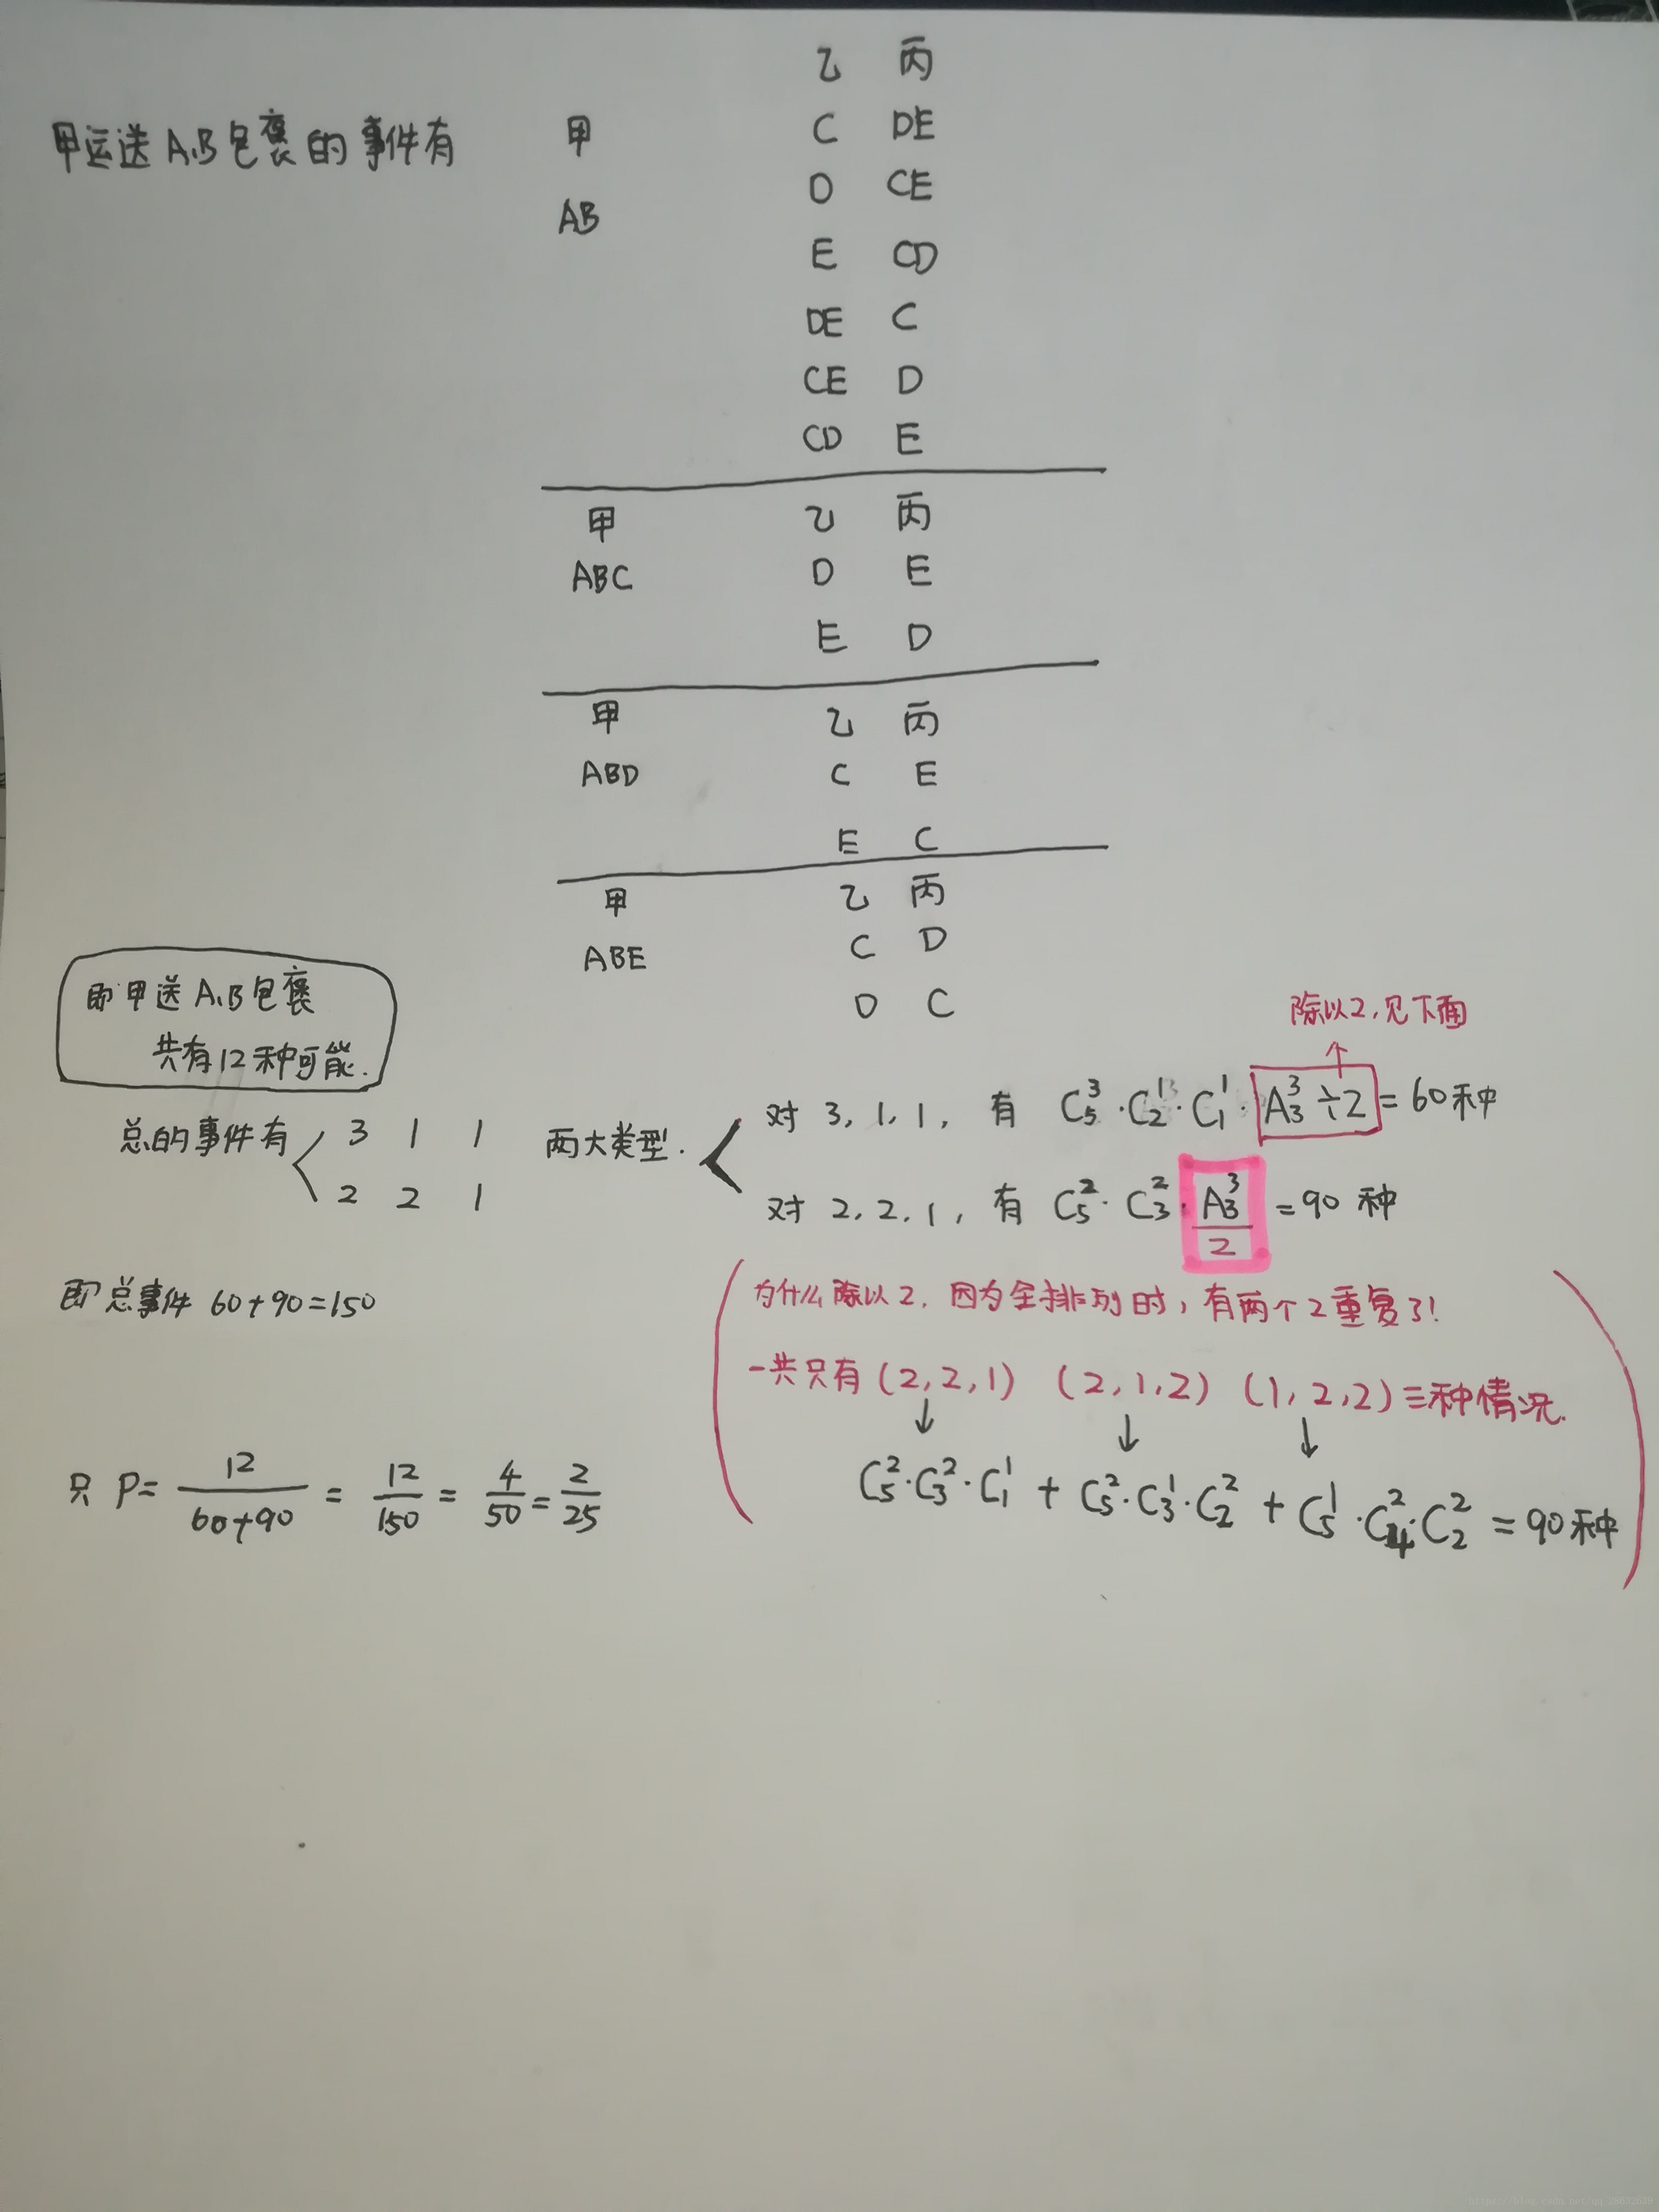 乙 丙
甲运送A、B包裹的事件有 甲 C DE
AB D CE
E CD
DE C
CE D
CD E
甲 乙 丙
ABC D E
E D
甲 乙 丙
ABD C E
E C
甲 乙 丙
ABE C D
D C
即甲送A、B包裹
共有12种可能.
除以2,见下面
总的事件有 3 1 1 两大类型.
2 2 1
对 3, 1, 1, 有 C₅³·C₂¹·C₁¹·A₃³÷2=60种
对 2, 2, 1, 有 C₅²·C₃²·A₃³/2=90种
即总事件 60+90=150
为什么除以2, 因为全排列时, 有两个2重复了!
一共只有(2,2,1) (2,1,2) (1,2,2)三种情况.
↓ ↓ ↓
C₅²·C₃²·C₁¹+C₅²·C₃¹·C₂²+C₅¹·C₄²·C₂²=90种
只 P=12/(60+90)=12/150=4/50=2/25